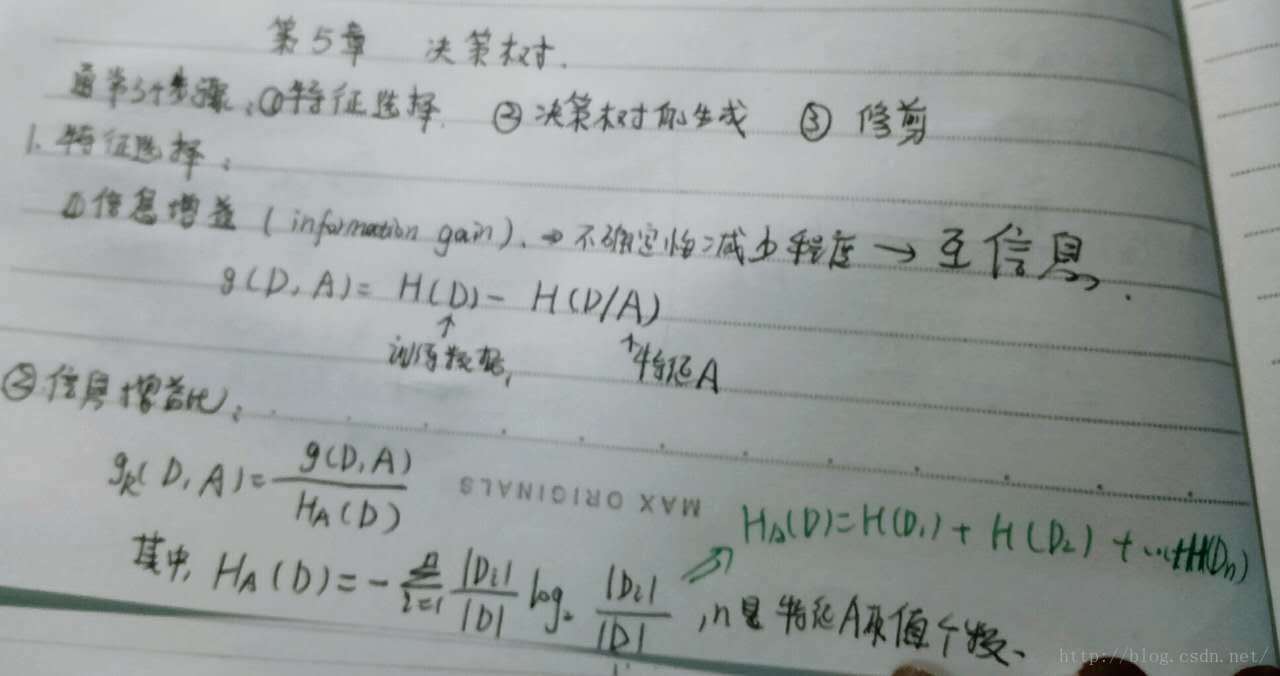 第5章 决策树.
通常3个步骤:①特征选择. ②决策树的生成 ③ 修剪
1. 特征选择:
①信息增益 (information gain). → 不确定性减少程度 → 互信息.
g(D,A)= H(D)- H(D/A)
↑训练数据, ↑特征A
②信息增益比:
g_R(D,A)= g(D,A) / H_A(D)
MAX ORIGINALS
H_A(D)=H(D₁)+ H(D₂) + ...+H(Dn)
其中, H_A(D)= -∑_{i=1}^{n} |Di|/|D| log₂ |Di|/|D| ,n是特征A取值个数、
http://blog.csdn.net/